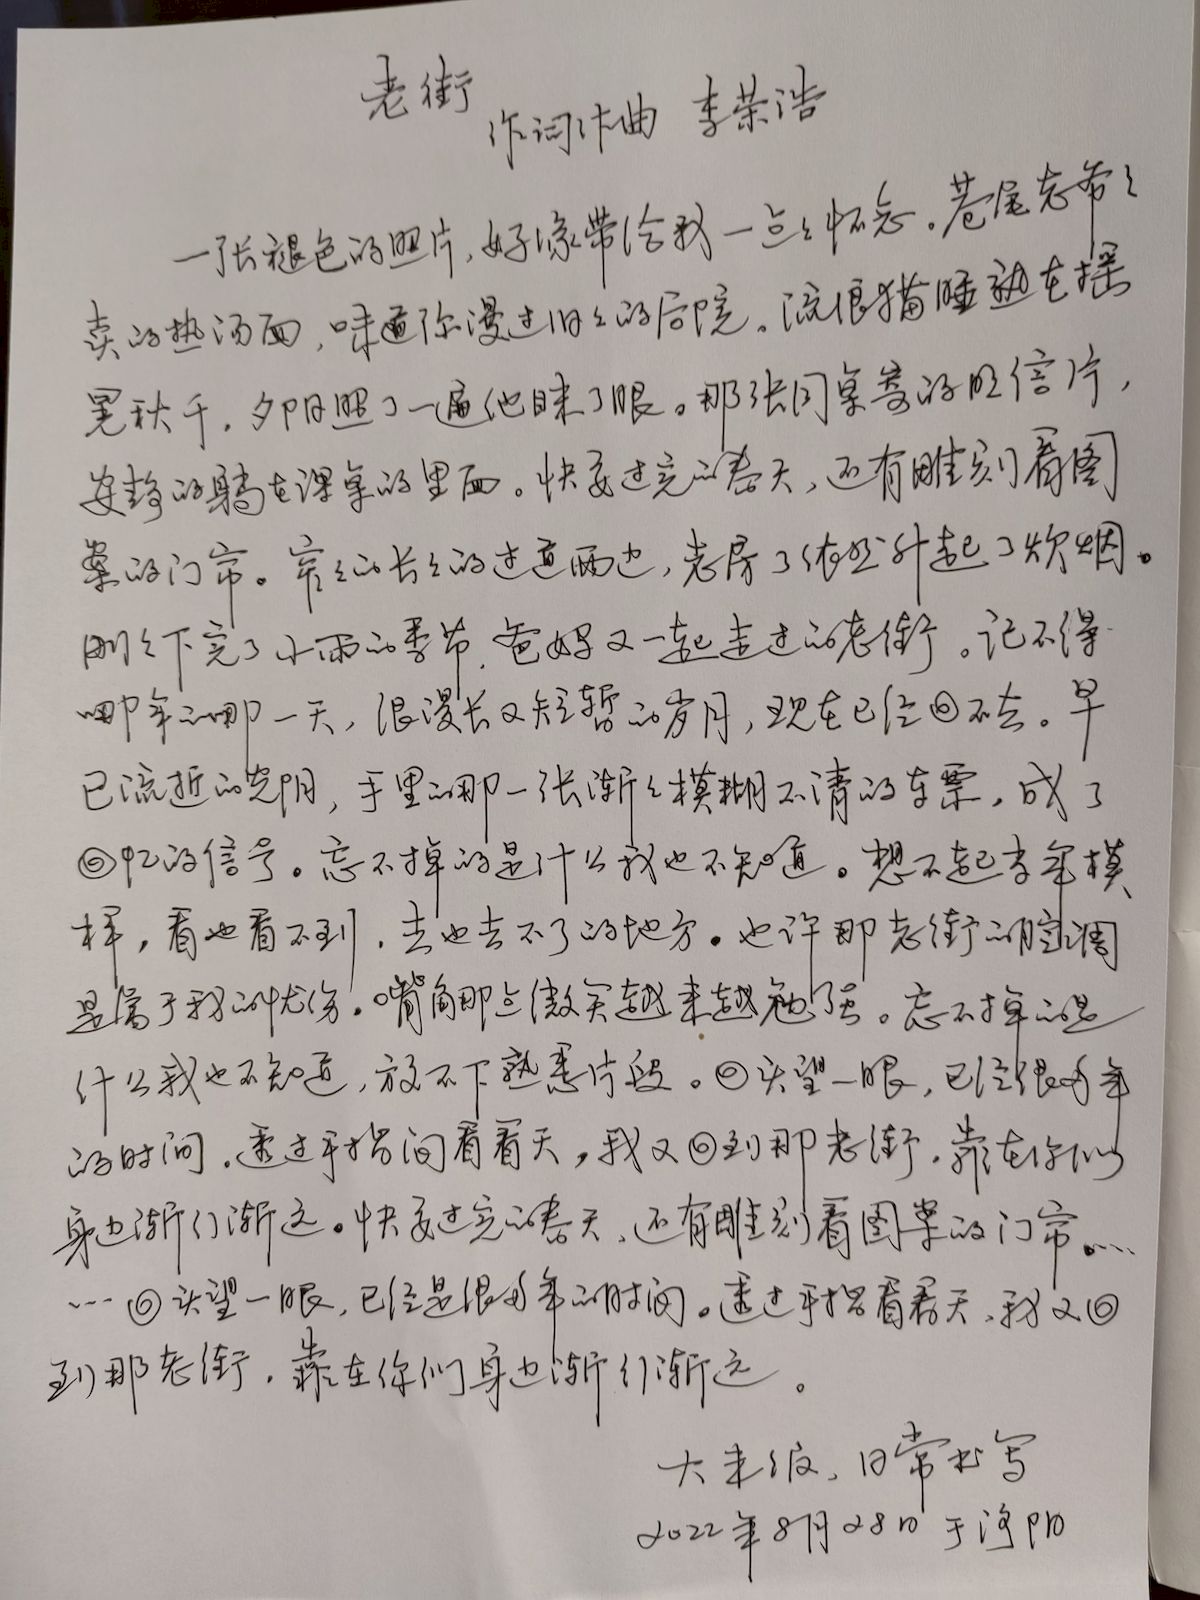 老街
作词作曲 李荣浩
一张褪色的照片，好像带给我一点点怀念。巷尾老爷爷
卖的热汤面，味道弥漫过旧旧的后院。流浪猫睡熟在摇
晃秋千，夕阳照了一遍他眯了眼。那张同桌寄的明信片，
安静的躺在课桌的里面。快要过完的春天，还有雕刻着图
案的门帘。窄窄的长长的过道两边，老房子依然升起了炊烟。
刚刚下完了小雨的季节，爸妈又一起走过的老街。记不得
哪年的哪一天，很漫长又短暂的岁月，现在已经回不去。早
已流逝的光阴，手里的那一张渐渐模糊不清的车票，成了
回忆的信号。忘不掉的是什么我也不知道。想不起当年模
样，看也看不到，去也去不了的地方。也许那老街的腔调
是属于我的忧伤。嘴角那点微笑越来越勉强。忘不掉的是
什么我也不知道，放不下熟悉片段。回头望一眼，已经很多年
的时间。透过手指间看着天，我又回到那老街，靠在你们
身边渐行渐远。快要过完的春天，还有雕刻着图案的门帘。……
……回头望一眼，已经是很多年的时间。透过手指看着天，我又回
到那老街，靠在你们身边渐行渐远。
日常书写
2022年8月28日于洛阳